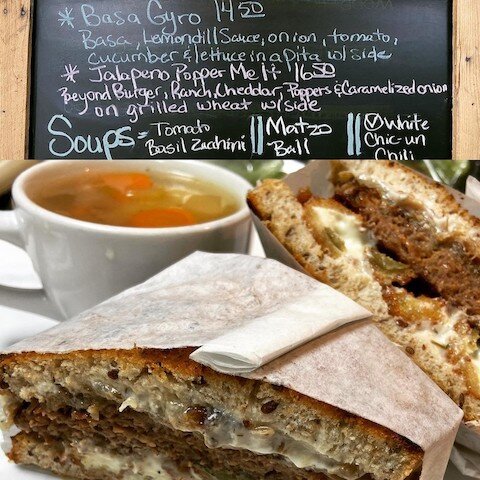 * Basa Gyro 14.50
Basa, Lemondill Sauce, onion, tomato,
cucumber & lettuce in a pita w/ side
* Jalapeno Popper Melt 16.50
Beyond Burger, Ranch, Cheddar, Poppers & Caramelized onion
on grilled wheat w/side
Soups = Tomato Basil Zuchini || Matzo Ball || White Chic-un Chili